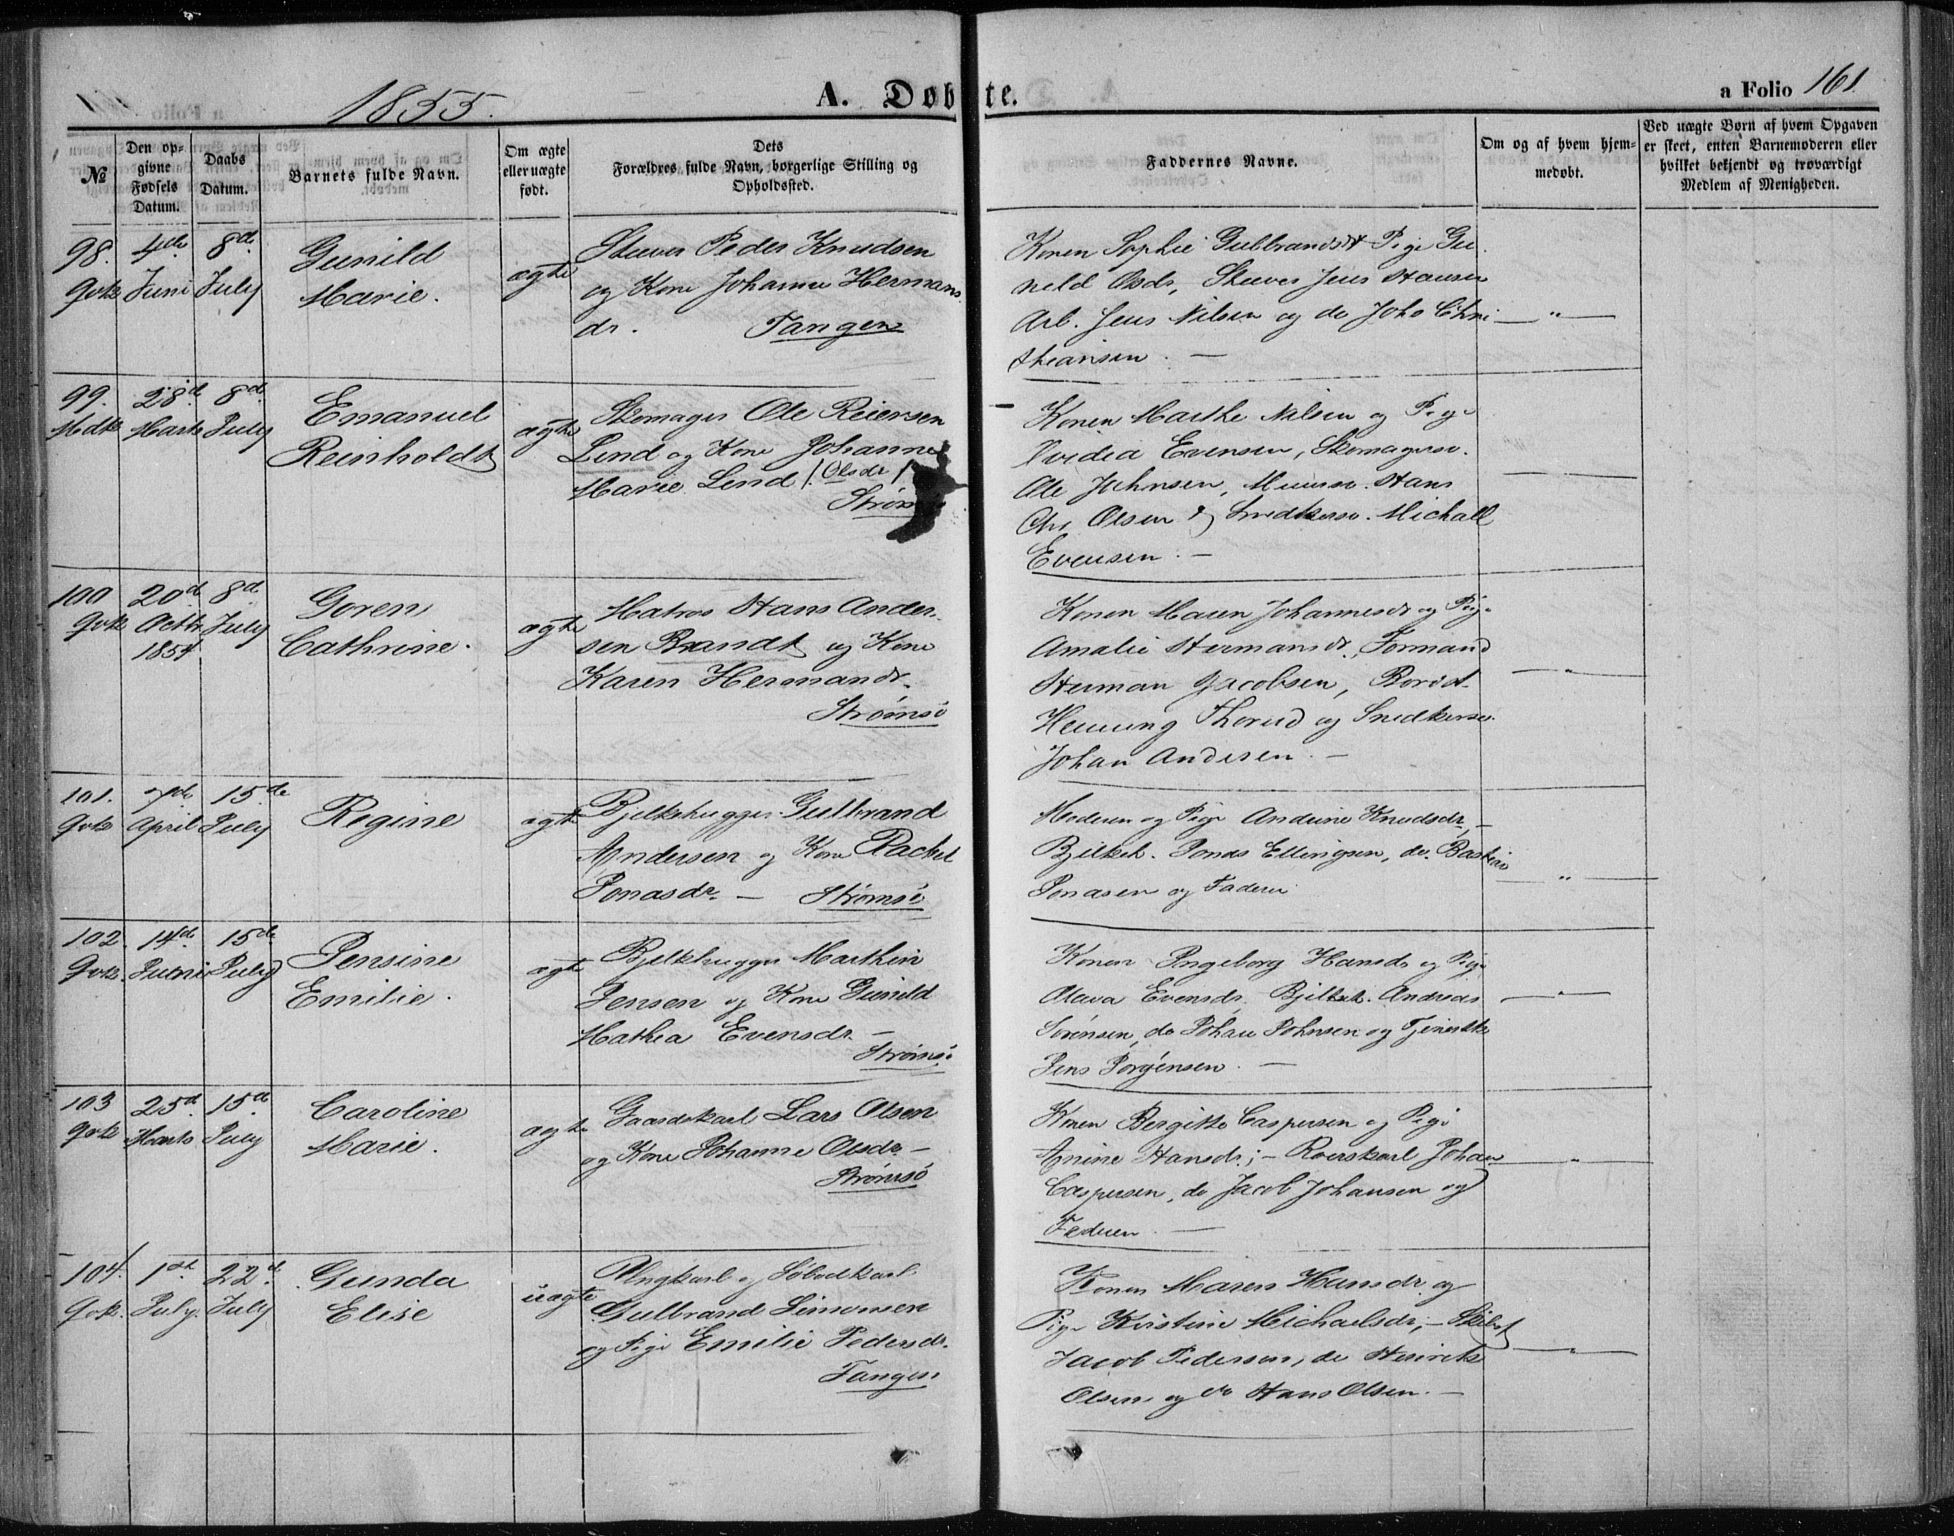 1855.
A. Døbte.
a Folio 161
№
Den op-
givne
Fødsels
Datum.
Daabs
Datum.
Barnets fulde Navn.
Om ægte
eller uægte
født.
Dets
Forældres fulde Navn, borgerlige Stilling og
Opholdssted.
Faddernes Navne.
Om og af hvem hjem-
medøbt.
Ved uægte Børn af hvem Opgaven
er skeet, enten Barnemoderen eller
hvilket bekjendt og troværdigt
Medlem af Menigheden.
98. 4de 8d.
Juni July
Gunild
Marie.
ægte
Stuver Peder Knudsen
og Kone Johanne Hermans
dr. Tangen
Konen Sophie Gulbrandsdr Pige Gu
nild Olsdr, Stuver Jens Hansen
Arb. Jens Nilsen og do Johs Chri
stiansen. —
99. 28d. 8d.
Marts July
Emanuel
Reinholdt
ægte
Skomager Ole Reiersen
Lind og Kone Johanne
Marie Lind /: Olsdr
Strømsø
Konen Marthe Nilsen og Pige
Evensen, Skomagersv.
Ole Johnsen, Muursv. Hans
Chr Olsen og Snedkersv. Michall
Evensen. —
100 20d. 8d.
Octbr July
1854
Goren
Cathrine.
ægte
Matros Hans Ander-
sen Brandt og Kone
Karen Hermandr.
Strømsø
Konen Maren Johannesdr og Pige
Amalie Hermansdr., Formand
Herman Jacobsen,
Henning Thorud og Snedkersv.
Johan Andersen. —
101. 7de 15de
April July
Regine
ægte
Bjelkehugger Gulbrand
Andersen og Kone Rachel
Jonasdr. — Strømsø
Moderen og Pige Andrine Knudsdr, —
Bjelkeh. Jonas Ellingsen, do. Bastian
Jonasen og Faderen
102. 14d. 15de
Juni July
Jensine
Emilie.
ægte
Bjelkhugger Marthin
Jensen og Kone Gunild
Mathea Evensdr. —
Strømsø
Konen Ingeborg Hansdr og Pige
Olava Evensdr. Bjelkeh. Andreas
Sørensen, do Johan Johnsen og
Jens Jørgensen. —
103 25d. 15d.
Marts July
Caroline
Marie.
ægte
Gaardskarl Lars Olsen
og Kone Johanne Olsdr. —
Strømsø
Konen Bergitte Caspersen og Pige
Anine Hansdr; — Roerskarl Johan
Caspersen, do Jacob Johansen og
Faderen. —
104. 1st. 22d.
July. July
Gunda
Elise
uægte
Ungkarl og
Gulbrand Simonsen
og Pige Emilie Pedersdr.
Tangen
Konen Maren Hansdr. og
Pige Kristine Michaelsdr, —
Jacob Pedersen, do Henrik
Olsen og do Hans Olsen. —